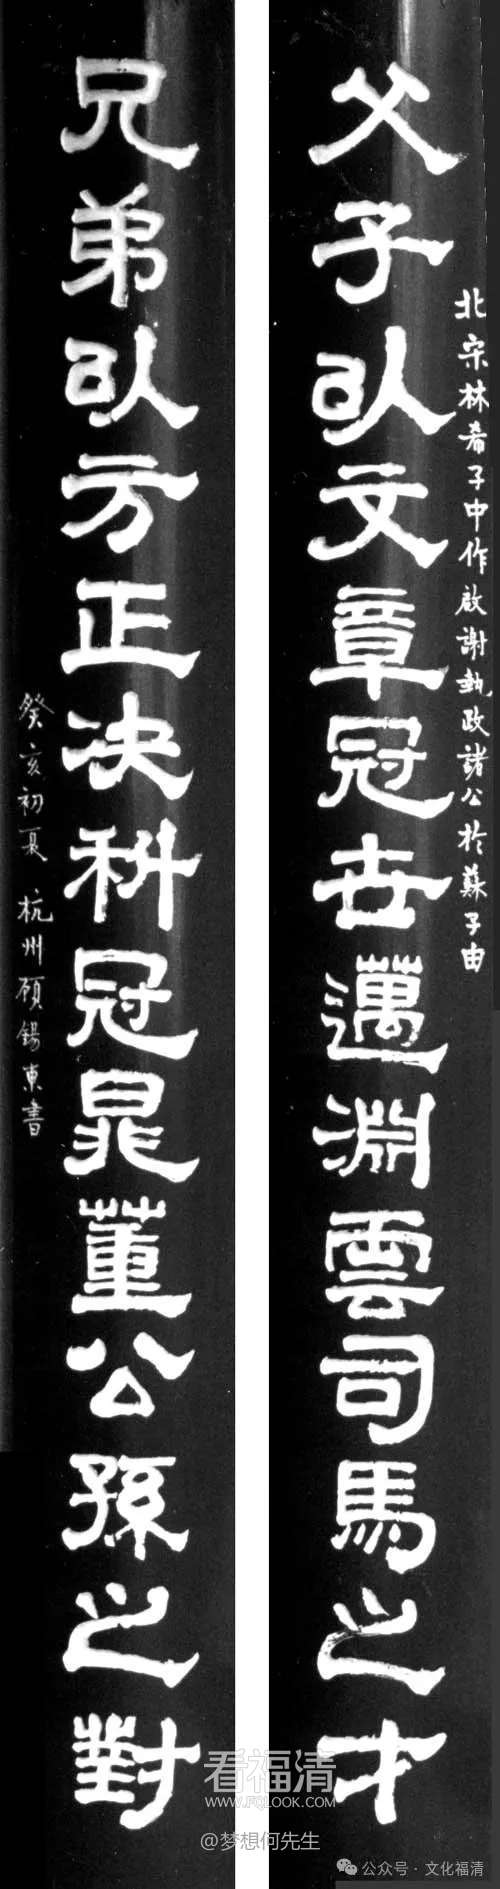 北宋林希子中作啟謝執政諸公於蘇子由
父子以文章冠世邁淵雲司馬之才
兄弟以方正决科冠晁董公孫之對
癸亥初夏 杭州顾錫東書
看福清
WWW.FQLOOK.COM
@梦想何先生
公众号·文化福清